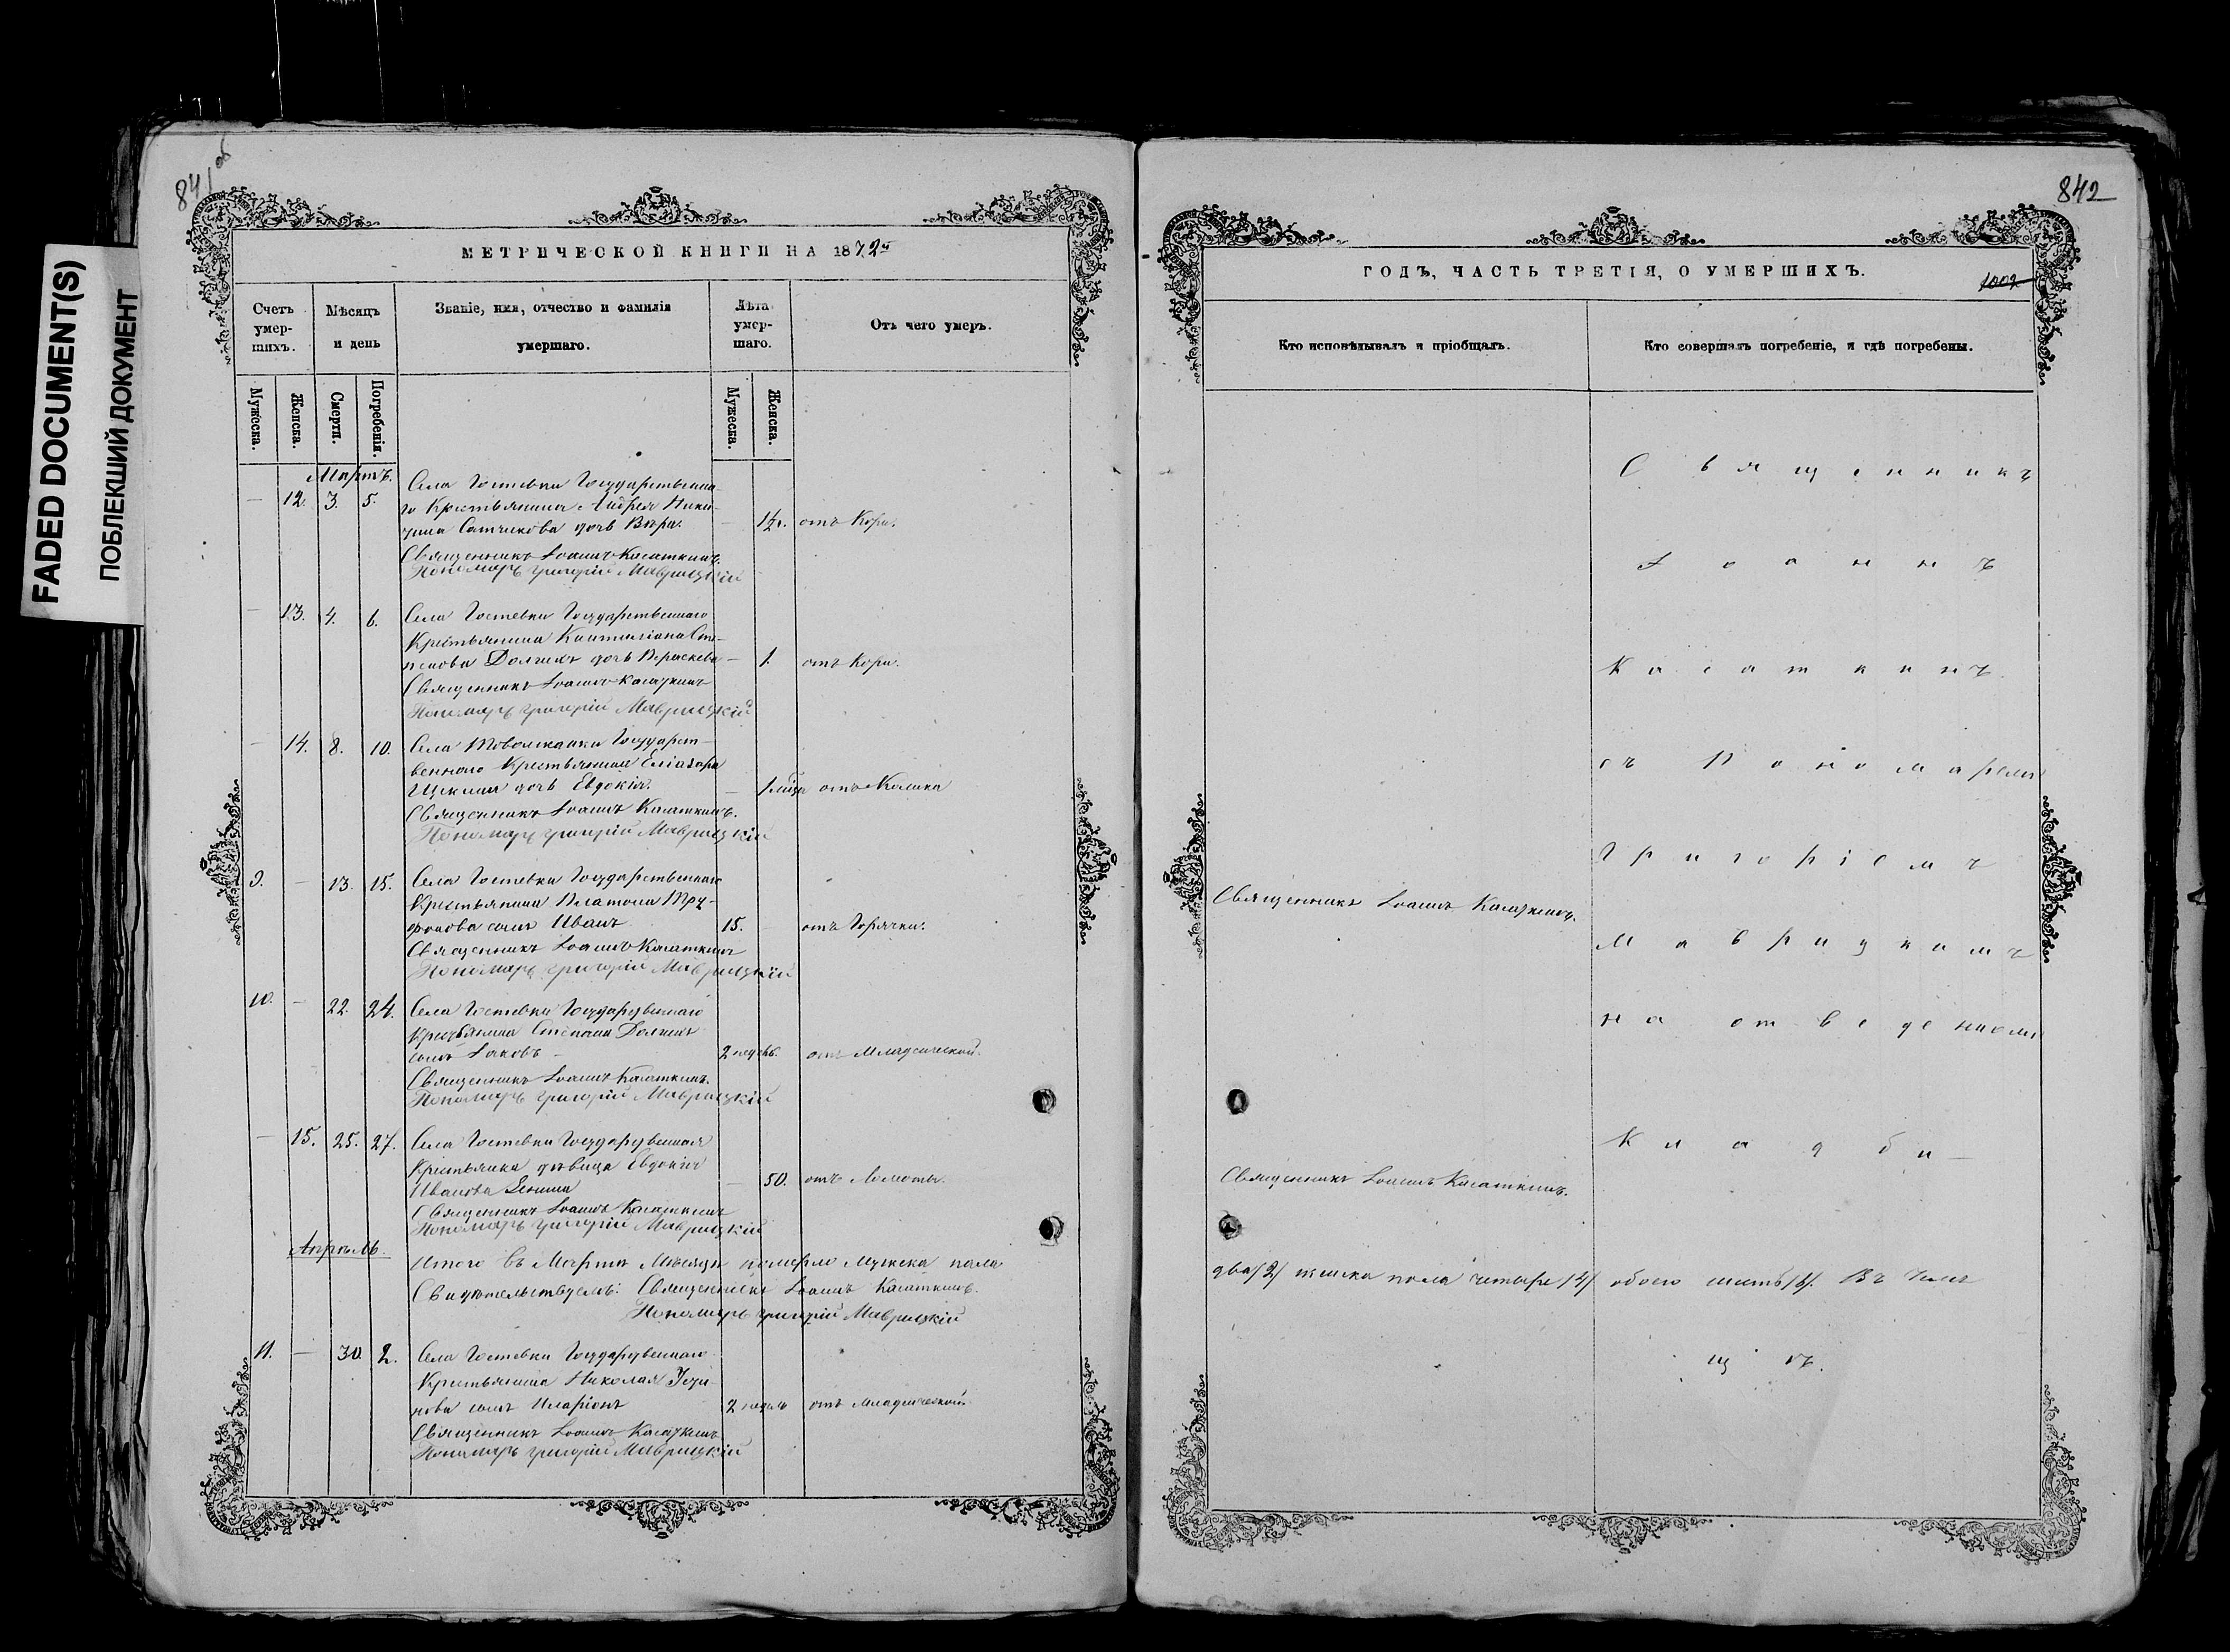 841 об
842
FADED DOCUMENT(S)
ПОБЛЕКШИЙ ДОКУМЕНТ
МЕТРИЧЕСКОЙ КНИГИ НА 1872й
Счетъ умер-шихъ.
Мѣсяцъ и день
Званіе, имя, отчество и фамилія умершаго.
Лѣта умер-шаго.
Отъ чего умеръ.
Мужеска. Женска. Смерти. Погребенія. Мужеска. Женска.
Мартъ.
Села Гостевки Государственна-
12. 3. 5. го Крестьянина Андрея Ники-
дочь Вѣра. отъ Кори.
Священникъ Іоаннъ Касаткинъ.
Пономарь Григорій Маврицкій
13. 4. 6. Села Гостевки Государственнаго
Крестьянина Сте-
панова Долгихъ дочь Параскева 1. отъ Кори.
Священникъ Іоаннъ Касаткинъ
Пономарь Григорій Маврицкій
14. 8. 10. Села Государст-
веннаго Крестьянина
дочь Евдокія. отъ Колики
Священникъ Іоаннъ Касаткинъ.
Пономарь Григорій Маврицкій
9. 13. 15. Села Гостевки Государственнаго
Крестьянина Платона Три-
фонова сынъ Иванъ 15. отъ Горячки.
Священникъ Іоаннъ Касаткинъ
Пономарь Григорій Маврицкій
10. 22. 24. Села Гостевки Государственнаго
Крестьянина Степана Долгихъ
сынъ Іаковъ 2 недѣль. отъ Младенческой.
Священникъ Іоаннъ Касаткинъ.
Пономарь Григорій Маврицкій
15. 25. 27. Села Гостевки Государственная
Крестьянка дѣвица Евдокія
Иванова 50. отъ Ломоты.
Священникъ Іоаннъ Касаткинъ
Пономарь Григорій Маврицкій
Апрѣль.
Итого въ Мартѣ Мѣсяцѣ померло Мужска пола
Свидѣтельствуемъ: Священникъ Іоаннъ Касаткинъ.
Пономарь Григорій Маврицкій
11. 30. 2. Села Гостевки Государственнаго
Крестьянина Николая
сынъ Иларіонъ 2 недѣль отъ младенческой
Священникъ Іоаннъ Касаткинъ
Пономарь Григорій Маврицкій
ГОДЪ, ЧАСТЬ ТРЕТІЯ, О УМЕРШИХЪ.
1002
Кто исповѣдывалъ и пріобщалъ.
Кто совершалъ погребеніе, и гдѣ погребены.
Священникъ
Іоаннъ
Касаткинъ
съ Пономаремъ
Григоріемъ
Священникъ Іоаннъ Касаткинъ.
Маврицкимъ
на отведенномъ
Кладби-
Священникъ Іоаннъ Касаткинъ.
два /2/ женска пола четыре /4/ обоего шесть /6/. Въ чемъ
щѣ.